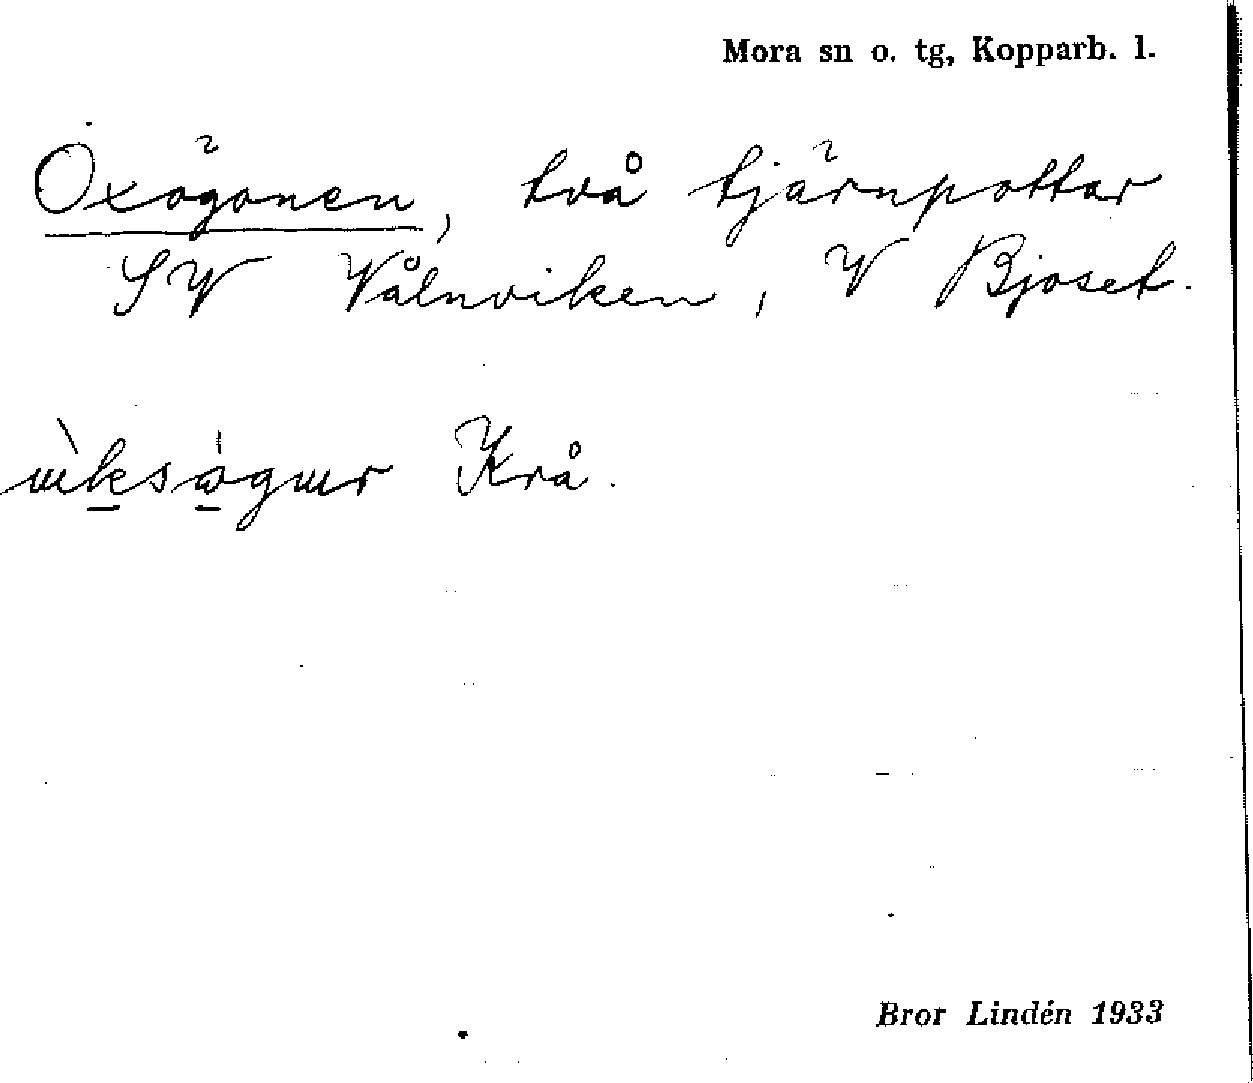 Mora sn o. tg, Kopparb. l.
Oxögonen, två tjärnpottar
SV Vålnviken, V Bjoset.
Krå.
Bror Lindén 1933